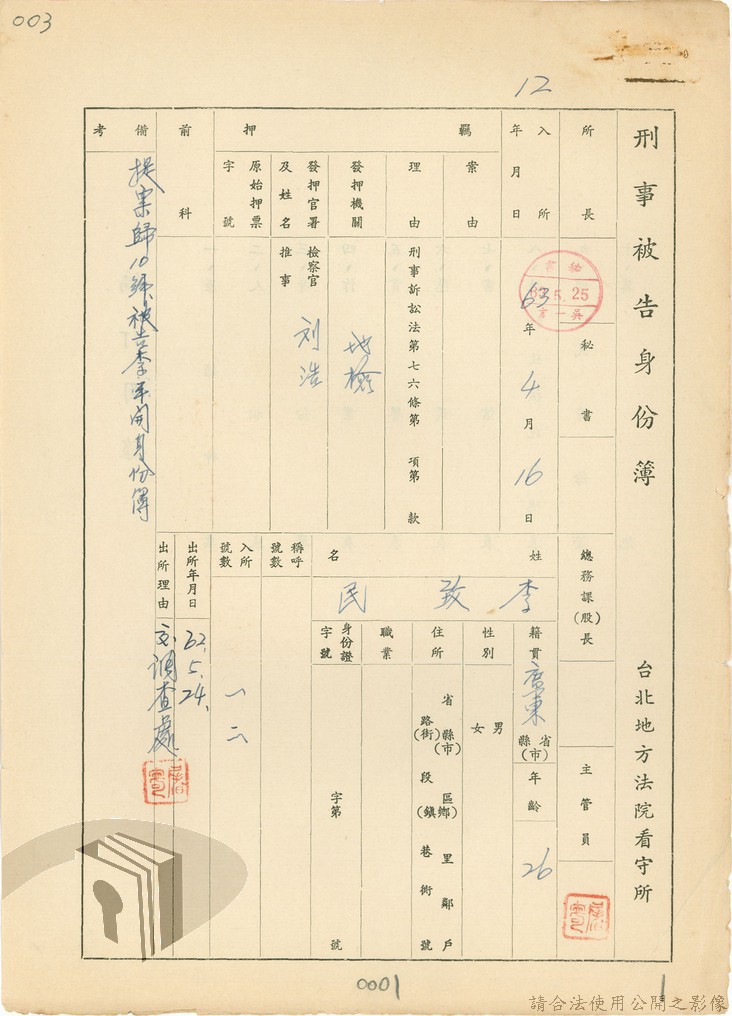 003
12
刑事被告身份簿
台北地方法院看守所
所長
秘書
總務課(股)長
主管員
入所年月日
63年4月16日
5.25
姓名
李致民
籍貫
廣東
省縣(市)
年齡
26
性別
男女
住所
省縣(市)區(鄉鎮)里鄰戶
路(街)段巷衖號
職業
身份證字號
字第號
稱呼號數
入所號數
一二
出所年月日
62.5.24.
出所理由
交調查處
羈押
案由
理由
刑事訴訟法第七六條第項第款
發押機關
地檢
發押官署及姓名
檢察官
推事
刘浩
原始押票字號
前科
備考
提案歸10號被告李
身份簿
0001
1
請合法使用公開之影像